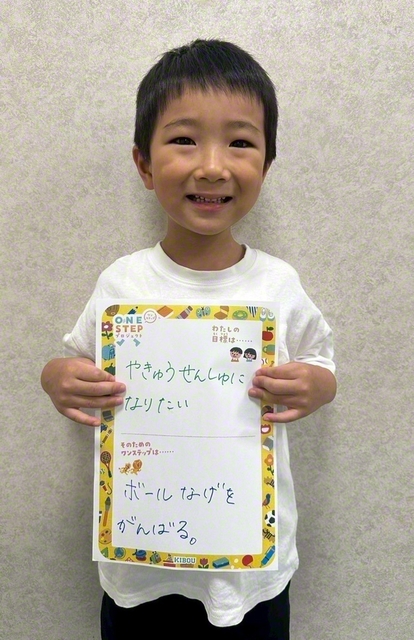 ONE
STEP
プロジェクト
わたしの
目標は……
やきゅうせんしゅに
なりたい
そのための
ワンステップは……
ボールなげを
がんばる。
KIBOU